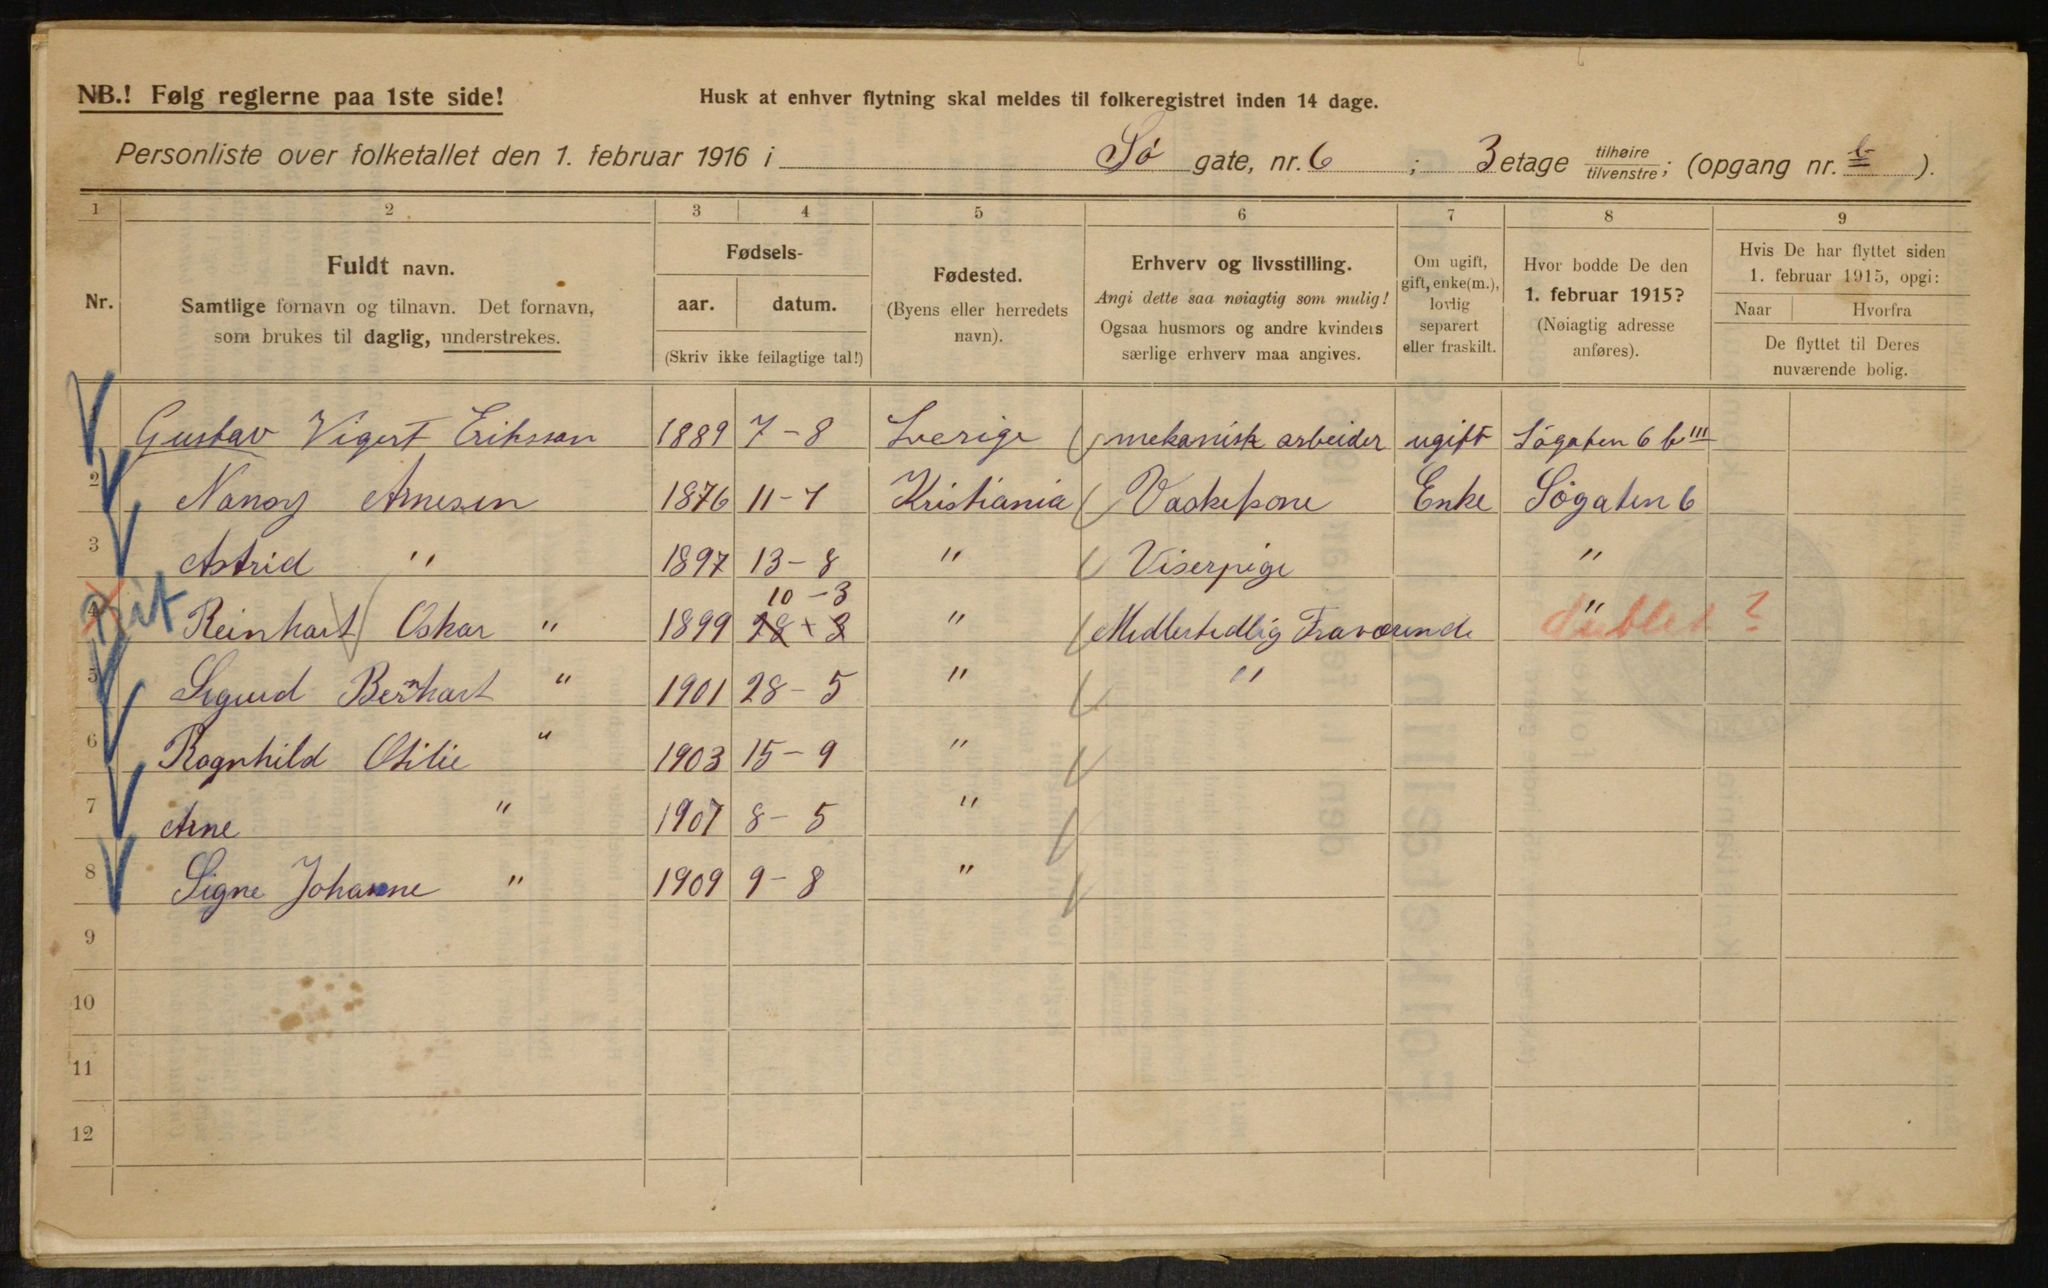 NB.! Følg reglerne paa 1ste side! Husk at enhver flytning skal meldes til folkeregistret inden 14 dage.
Personliste over folketallet den 1. februar 1916 i Sø gate, nr. 6 ; 3 etage tilhøire tilvenstre ; (opgang nr. b ).
1 2 3 4 5 6 7 8 9
Nr.
Fuldt navn.
Samtlige fornavn og tilnavn. Det fornavn,
som brukes til daglig, understrekes.
Fødsels-
aar. datum.
(Skriv ikke feilagtige tal!)
Fødested.
(Byens eller herredets
navn).
Erhverv og livsstilling.
Angi dette saa nøiagtig som mulig!
Ogsaa husmors og andre kvinders
særlige erhverv maa angives.
Om ugift,
gift, enke(m.),
lovlig
separert
eller fraskilt.
Hvor bodde De den
1. februar 1915?
(Nøiagtig adresse
anføres).
Hvis De har flyttet siden
1. februar 1915, opgi:
Naar Hvorfra
De flyttet til Deres
nuværende bolig.
Gustav Vigert Eriksson 1889 7-8 Sverige mekanisk arbeider ugift Søgaten 6 b III
2 Nancy Arnesen 1876 11-7 Kristiania Vaskekone Enke Søgaten 6
3 Astrid " 1897 13-8 " Viserpige "
10-3
4 Reinhart Oskar " 1899 28-3 " Midlertedlig Fraværende " dublet?
5 Sigurd Bernhart " 1901 28-5 " "
6 Ragnhild Otilie " 1903 15-9 "
7 Arne " 1907 8-5 "
8 Signe Johanne " 1909 9-8 "
9
10
11
12